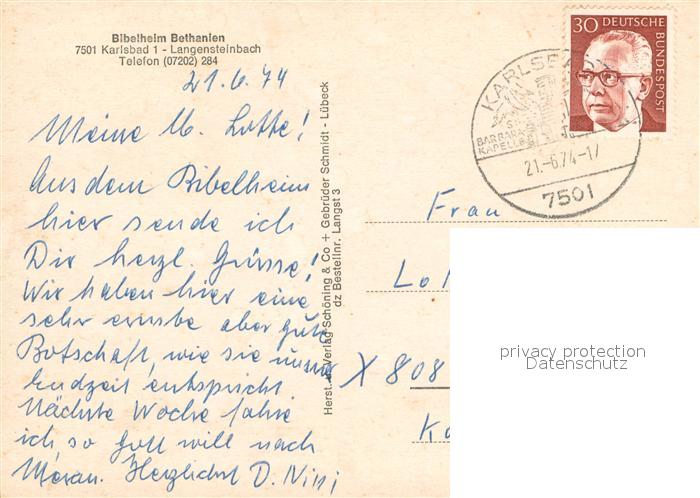 Bibelheim Bethanien
7501 Karlsbad 1 - Langensteinbach
Telefon (07202) 284
21.6.74
Meine lb. Lotte!
Aus dem Bibelheim
hier sende ich
Dir herzl. Grüsse!
Wir haben hier eine
sehr ernste aber gute
Botschaft, wie sie unsrer
Endzeit entspricht.
Nächste Woche fahre
ich so Gott will nach
Meran. Herzlichst D. Nini
Herst. u. Verlag Schöning & Co + Gebrüder Schmidt - Lübeck
dz Bestellnr. Langst 3
30 DEUTSCHE
BUNDESPOST
KARLSBAD
ST.
BARBARA
KAPELLE
21.-6.74-17
7501
Frau
Lo
X 808
Ka
privacy protection
Datenschutz